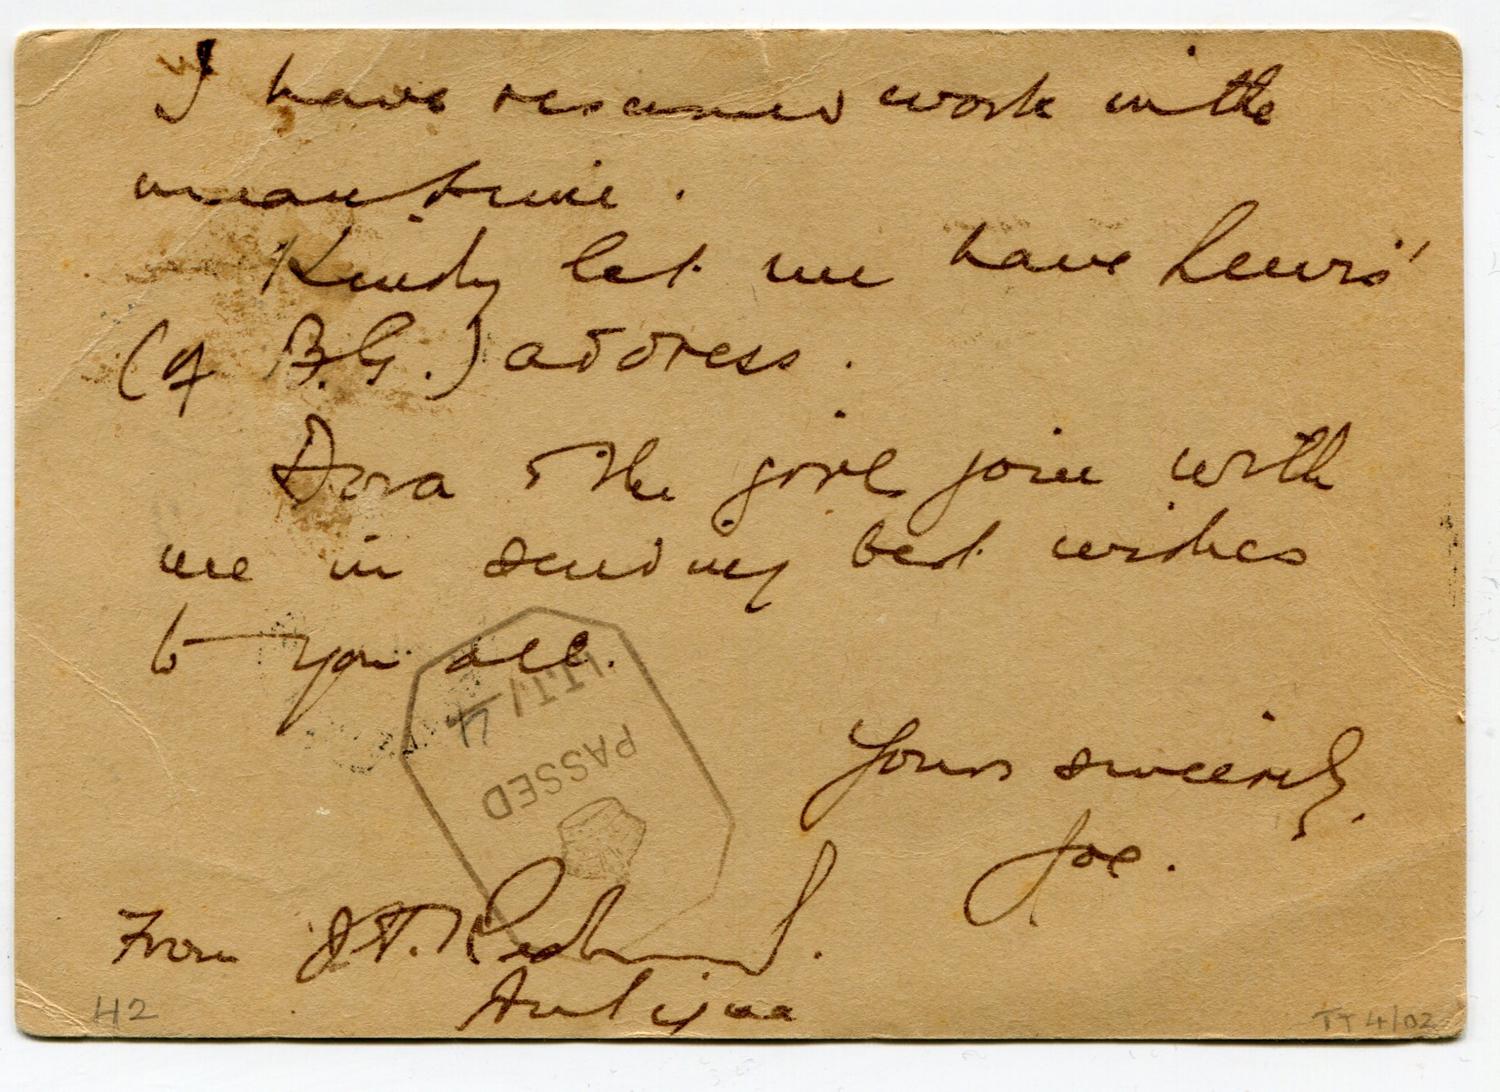 I have resumed work in the
meantime.
Kindly let me have Lewis'
(of B.G.) address.
Dora & the girl join with
me in sending best wishes
to you all.
Yours sincerely,
Joe.
From J.T.
Antigua
I.T./4
PASSED
H2
TT 4/02